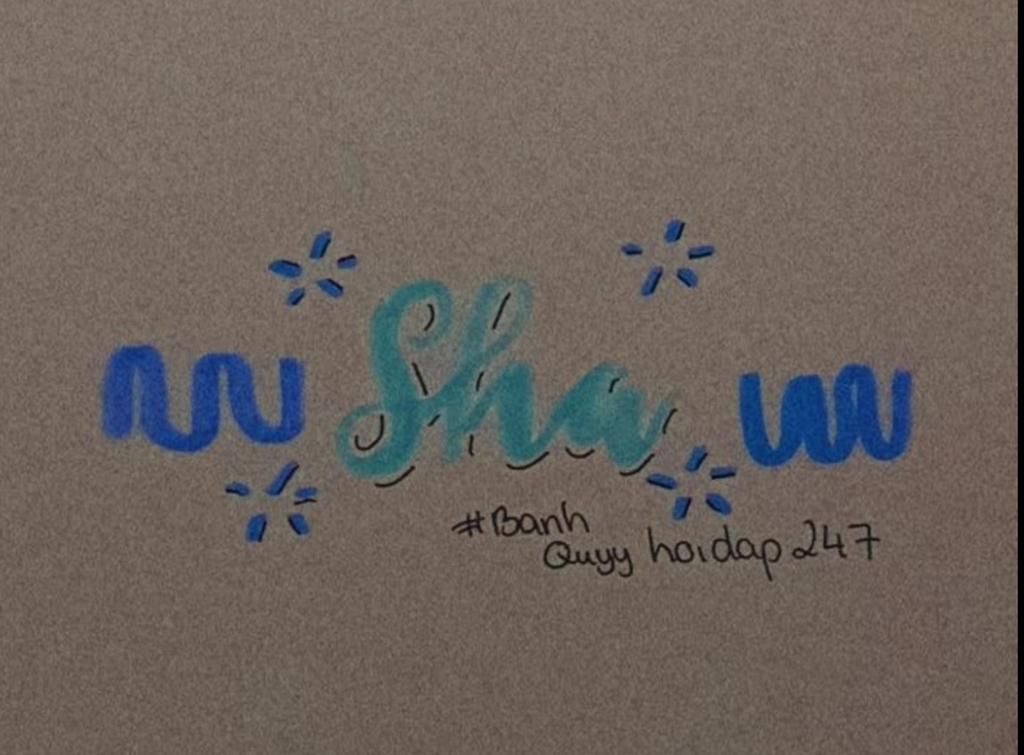 Sha
#Banh
Quyy hoidap247